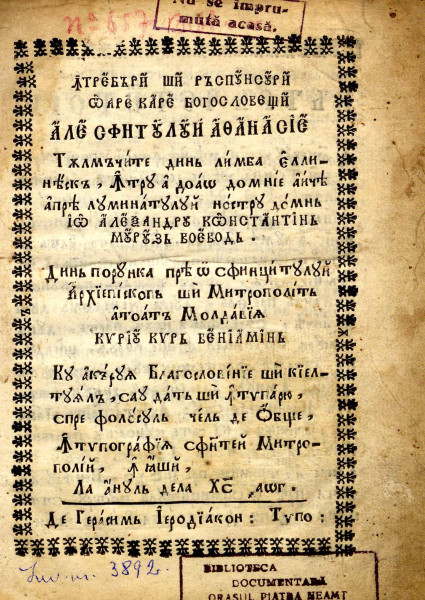 Nu se împru-
mută acasă.
Nº 657
Ꙟтребърй шѝ ръспꙋнсꙋрй
ѿаре каре богословещй
але сфитꙋлꙋй аѳанасіе
Тълмъчите динь лимба єлли-
нѣскъ, Ꙟтрꙋ а доаѡ домніе аичѣ
апрѣ лꙋминатꙋлꙋй ностру домнь
іѡ алеѯандрꙋ кѡнстантінь
мꙋрꙋзь воеводь.
Динь порꙋнка прѣ ѡ сфинцитꙋлꙋй
Архіепіскопь шѝ Митрополіть
атоатъ Молдавїѧ
кꙋріꙋ кѵрь веніамінь
Кꙋ акърꙋѧ Благословеніе шѝ кіел-
тꙋѧлъ, саꙋ дать шѝ ꙟтꙋпарю,
спре фолосꙋль чель де Ѻбще,
Ꙟтѵпографїѧ сфитей Митро-
полій, ꙟ Ꙗшй,
Ла анꙋль дела Хс҃ ҂аѡг.
Де Герасимь Іеродїаконь : Тѵпо :
Inv. nr. 3892.
BIBLIOTECA
DOCUMENTARĂ
ORAȘUL PIATRA NEAMȚ